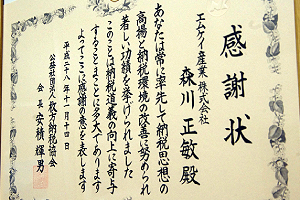 感謝状
エムケイ産業 株式会社
森川 正敏 殿
あなたは常に率先して納税思想の
高揚と納税環境の改善に努められ
著しい功績を挙げられました
このことは納税道義の向上に寄与
することまことに多大であります
よってここに感謝の意を表します
平成二十八年十一月十四日
公益社団法人枚方納税協会
会長 安積 輝男